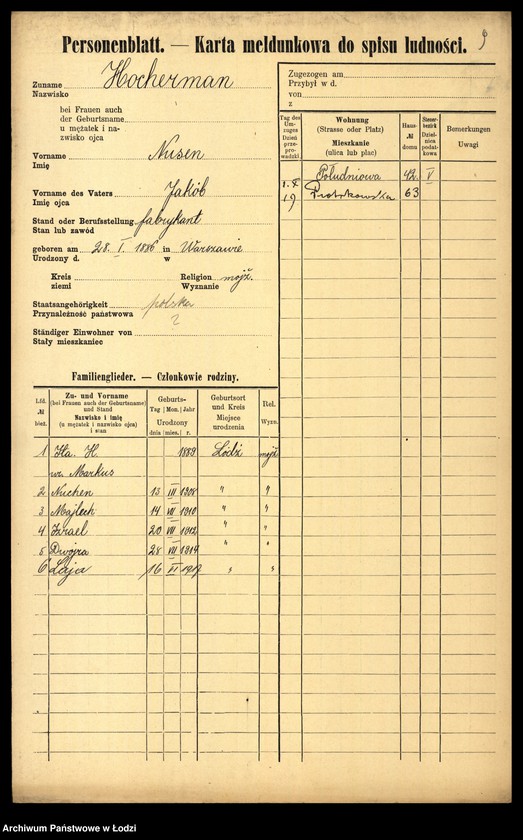 9
Personenblatt. — Karta meldunkowa do spisu ludności.
Zuname Hocherman
Nazwisko
bei Frauen auch
der Geburtsname
u mężatek i na-
zwisko ojca
Vorname Nusen
Imię
Vorname des Vaters Jakób
Imię ojca
Stand oder Berufsstellung fabrykant
Stan lub zawód
geboren am 28. I. 1886 in Warszawie
Urodzony d. w
Kreis Religion mojż.
ziemi Wyznanie
Staatsangehörigkeit polska
Przynależność państwowa 2
Ständiger Einwohner von
Stały mieszkaniec
Zugezogen am
Przybył w d.
von
z
Tag des Um-zuges Dzień prze-prowadzki.
Wohnung
(Strasse oder Platz)
Mieszkanie
(ulica lub plac)
Haus-
№
domu
Steuer-bezirk Dziel-nica podat-kowa
Bemerkungen
Uwagi
Południowa 42. V
1. X 19 Piotrkowska 63
Familienglieder. — Członkowie rodziny.
Lfd.
№
bież.
Zu- und Vorname
(bei Frauen auch der Geburtsname)
und Stand
Nazwisko i imię
(u mężatek i nazwisko ojca)
i stan
Geburts-
Tag Mon. Jahr
Urodzony
dnia mies. r.
Geburtsort
und Kreis
Miejsce
urodzenia
Rel.
Wyzn.
1 H. 1889 Łódź mojż
ur. Markus
2 Nuchen 13 III 1908 " "
3 Majlech 14 VII 1910 " "
4 Izrael 20 VII 1912 " "
5 Dwojra 28 VII 1914 " "
6 Łaja 16 VI 1917 " "
Archiwum Państwowe w Łodzi